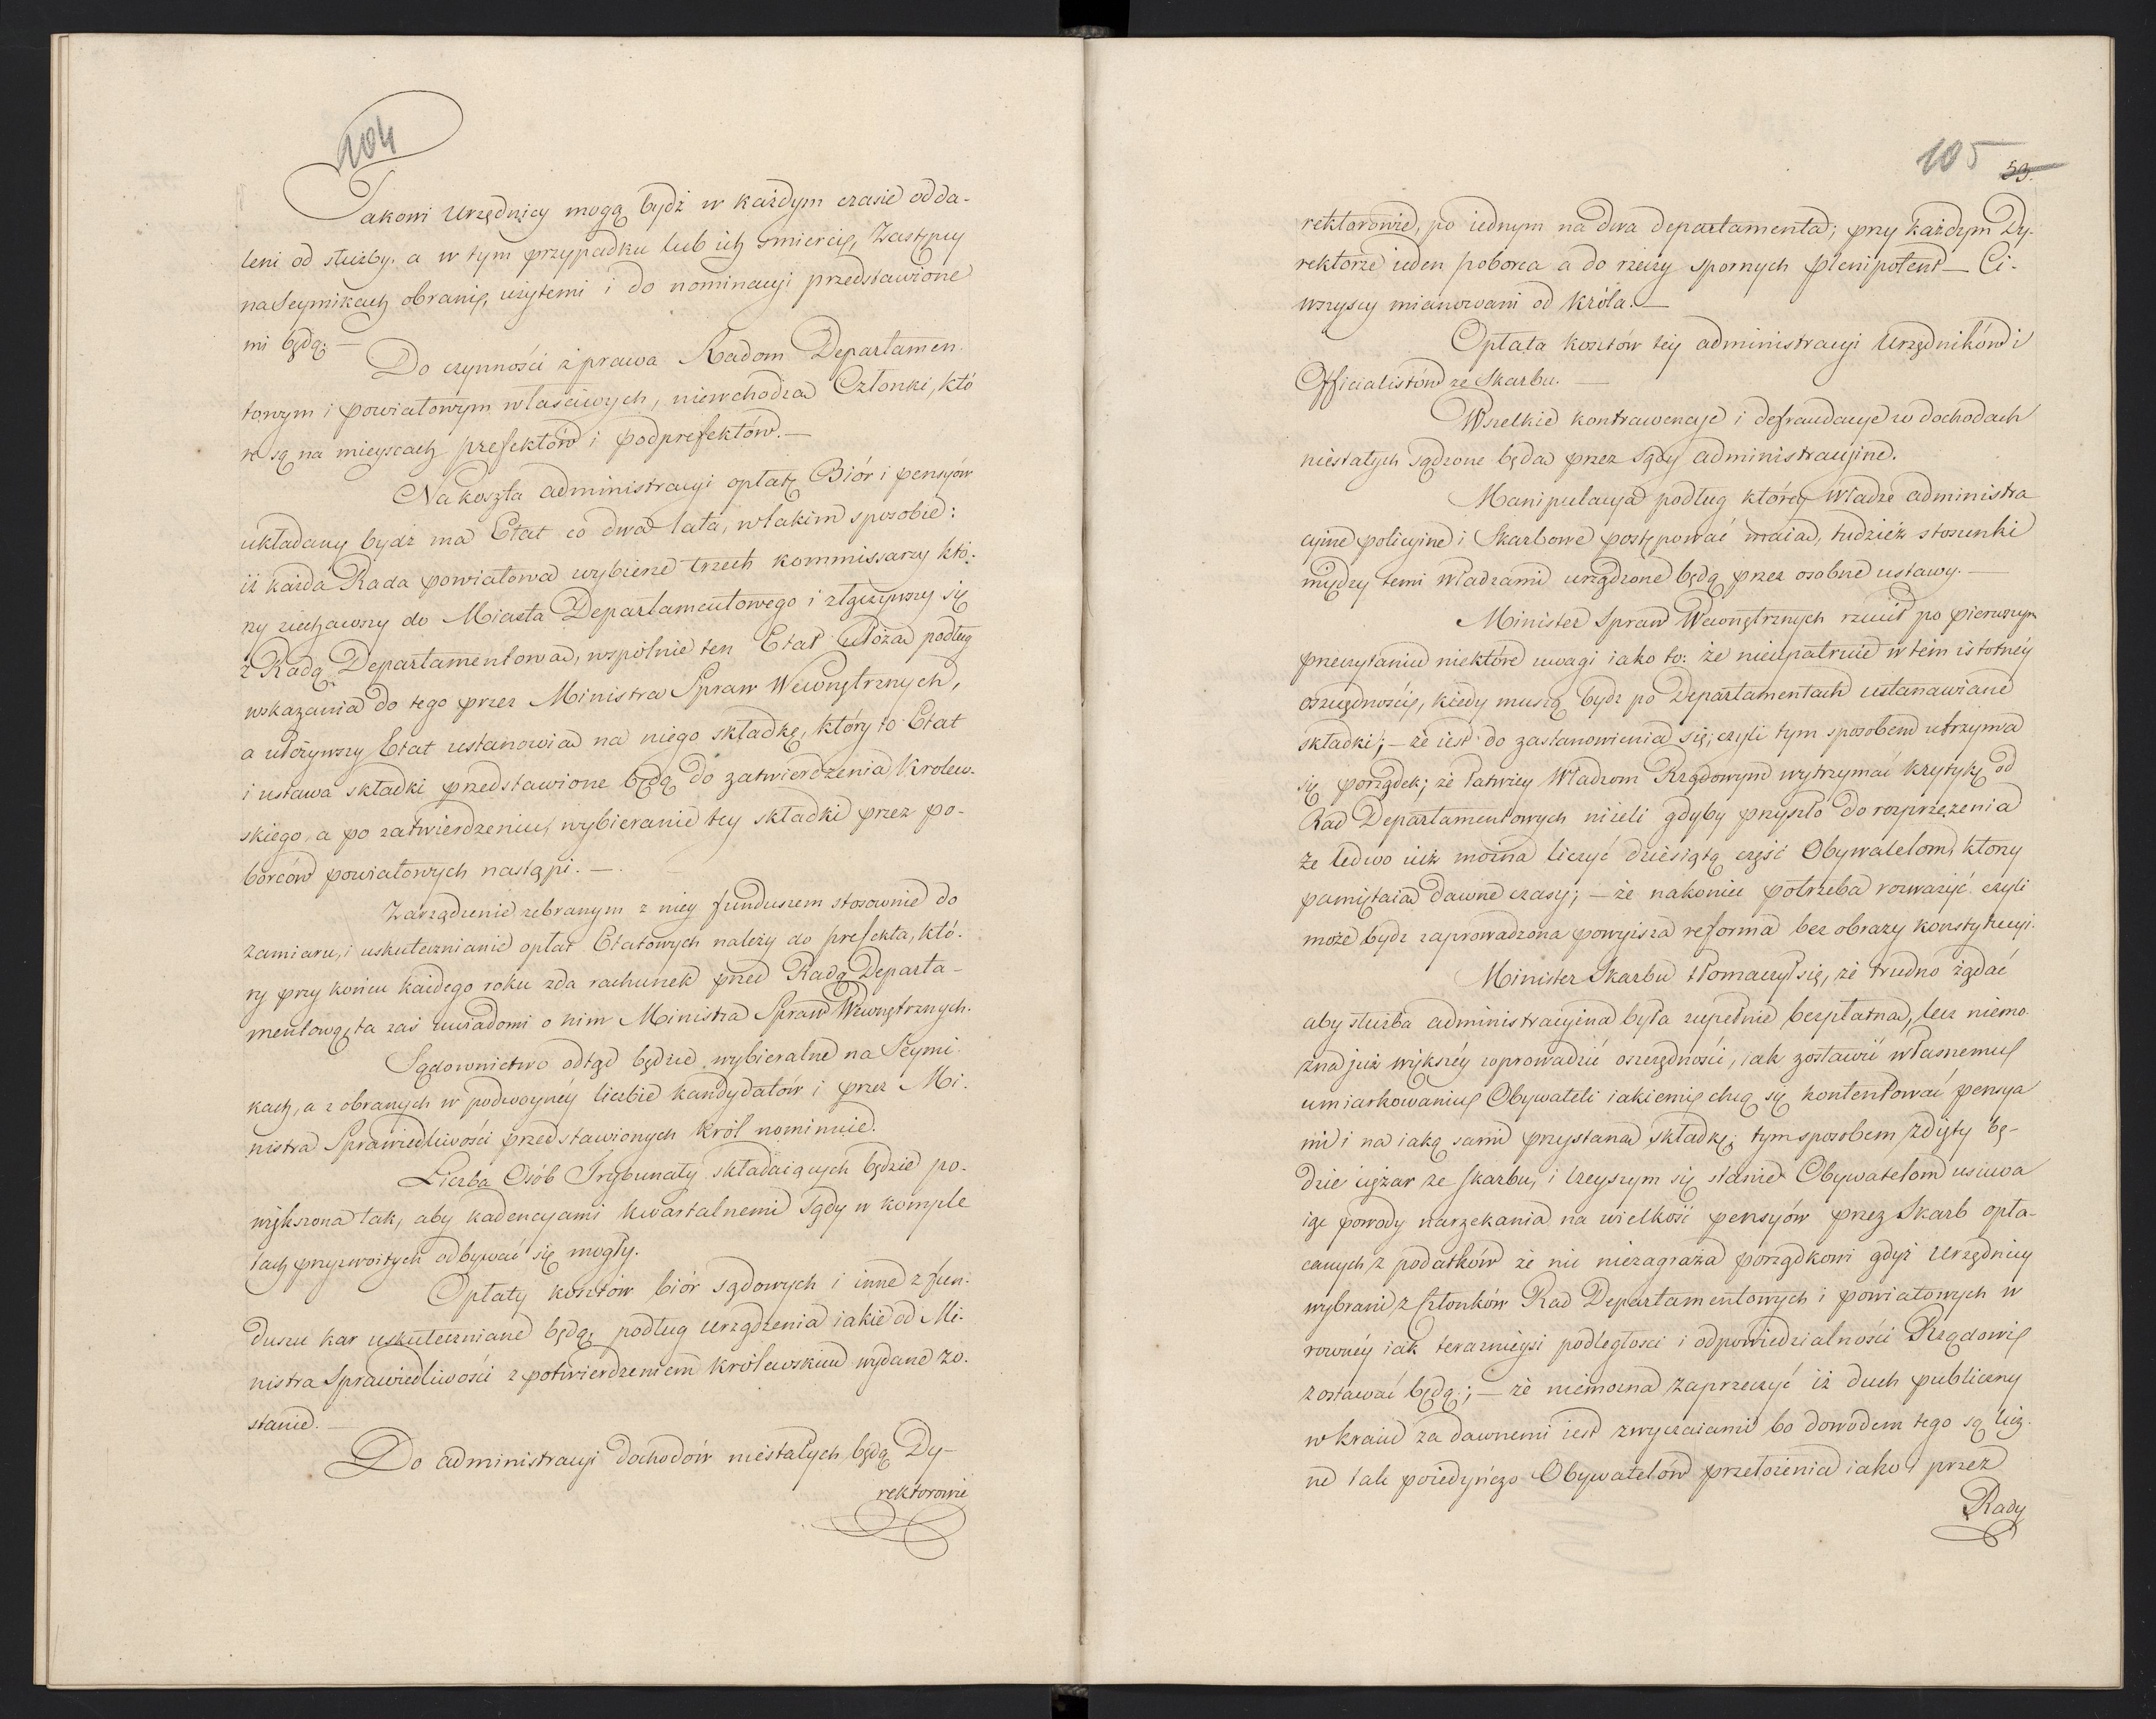 104
Takowi Urzędnicy mogą bydź w każdym czasie odda-
leni od służby. a w tym przypadku lub ich śmiercią, Zastępcy
na Seymikach obranię, użytemi i do nominacyi przedstawione
mi będą. —
Do czynności z prawa Radom Departamen
towym i powiatowym właściwych, niewchodza Członki, któ
re są na mieyscach prefektów i podprefektów. —
Na koszta administracyi opłatę Biór i pensyów
układany bydź ma Etat co dwa lata, w takim sposobie:
iż każda Rada powiatowa wybierze trzech kommissarzy któ-
rzy ziechawszy do Miasta Departamentowego i złączywszy się
z Radą Departamentowa, wspólnie ten Etat ułoża podług
wskazania do tego przez Ministra Spraw Wewnętrznych,
a ułożywszy Etat ustanowia na niego składkę, który to Etat
i ustawa składki przedstawione będą do zatwierdzenia Królew-
skiego, a po zatwierdzeniu, wybieranie tey składki przez po-
borców powiatowych nastąpi. —
Zarządzenie zebranym z niey funduszem stosownie do
zamiaru, i uskutecznianie opłat Etatowych należy do prefekta, któ-
ry przy końcu każdego roku zda rachunek przed Radą Departa-
mentową, ta zaś uwiadomi o nim Ministra Spraw Wewnętrznych.
Sądownictwo odtąd będzie wybieralne na Seymi-
kach, a z obranych w podwoynéy liczbie kandydatów i przez Mi-
nistra Sprawiedliwości przedstawionych Król nominuie.
Liczba Osób Trybunały składaiących będzie po-
większona tak, aby kadencyami kwartalnemi Sądy w komple
tach przyzwoitych odbywać się mogły.
Opłaty kosztów biór sądowych i inne z fun-
duszu kar uskuteczniane będą, podług urządzenia iakie od Mi-
nistra Sprawiedliwości z potwierdzeniem królewskiem wydane zo-
stanie. —
Do administracyi dochodów niestałych będą Dy-
rektorowie
105 53.
rektorowie, po iednym na dwa departamenta; przy każdym Dy-
rektorze ieden poborca a do rzeczy spornych plenipotent — Ci-
wszyscy mianowani od Króla. —
Opłata kosztów tey administracyi Urzędników i
Officialistów ze Skarbu. —
Wszelkie kontrawencye i defraudacye w dochodach
niestałych sądzone będa przez Sądy administracyine.
Manipulacya podług któréy Władze administra
cyine policyine i Skarbowe postępować maia, tudzież stosunki
między temi Władzami urządzone będą przez osobne ustawy. —
Minister Spraw Wewnętrznych rzucił po pierwszym
przeczytaniu niektóre uwagi iako to: że nieupatruie w tém istotnéy
oszczędności, kiedy muszą bydz po Departamentach ustanawiane
składki; — że iest do zastanowienia się, czyli tym sposobem utrzyma
się porządek; że łatwiey Władzom Rządowym wytrzymać krytykę od
Rad Departamentowych niżeli gdyby przyszło do rozprzężenia
że ledwo iuż można liczyć dziesiątą część Obywatelom, ktorzy
pamiętaia dawne czasy; — że nakoniec potrzeba rozważyć czyli
może bydz zaprowadzona powyższa reforma bez obrazy konstytucyi.
Minister Skarbu tłomaczył się, że trudno żądać
aby służba administracyina była zupełnie bezpłatna, lecz niemo-
żna już większéy zaprowadzić oszczędności, iak zostawić własnemu
umiarkowaniu Obywateli iakiemi chcą się kontentować pensya
mi i na iaką sami przystana składkę; tym sposobem zdięty bę-
dzie ciężar ze skarbu, i lżeyszym się stanie Obywatelom usuwa
iąc powody narzekania na wielkość pensyów przez Skarb opła-
canych z podatków że nic niezagraża porządkowi gdyż Urzędnicy
wybrani z Członków Rad Departamentowych i powiatowych w
rownéy iak teraznieysi podległosci i odpowiedzialności Rządowi
zostawać będą; — że niemożna zaprzeczyć iż duch publiczny
w kraiu za dawnemi iest zwyczaiami bo dowodem tego są licz-
ne tak poiedyńczo Obywatelów przełożenia iako i przez
Rady